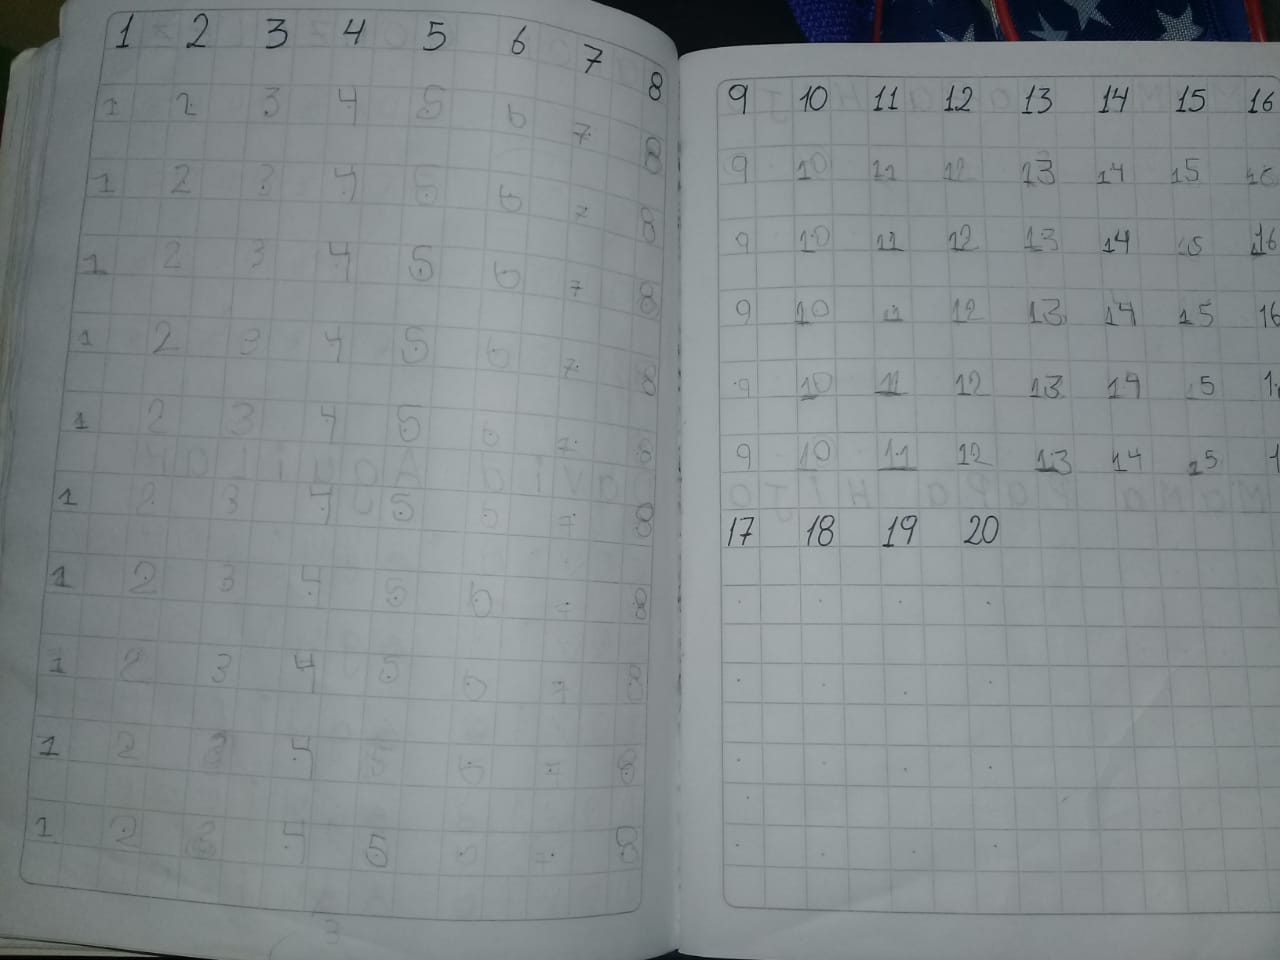 1 2 3 4 5 6 7 8
1 2 3 4 5 6 7 8
1 2 3 4 5 6 7 8
1 2 3 4 5 6 7 8
1 2 3 4 5 6 7 8
1 2 3 4 5 6 7 8
1 2 3 4 5 7 8
1 2 3 4 5 6 7 8
1 2 3 4 5 7 8
1 2 3 4 5 6 7 8
1 2 3 4 5 7 8
9 10 11 12 13 14 15 16
9 10 11 12 13 14 15
9 10 11 12 13 14 15 16
9 10 11 12 13 14 15 16
9 10 11 12 13 14 15
9 10 11 12 13 14 15
17 18 19 20